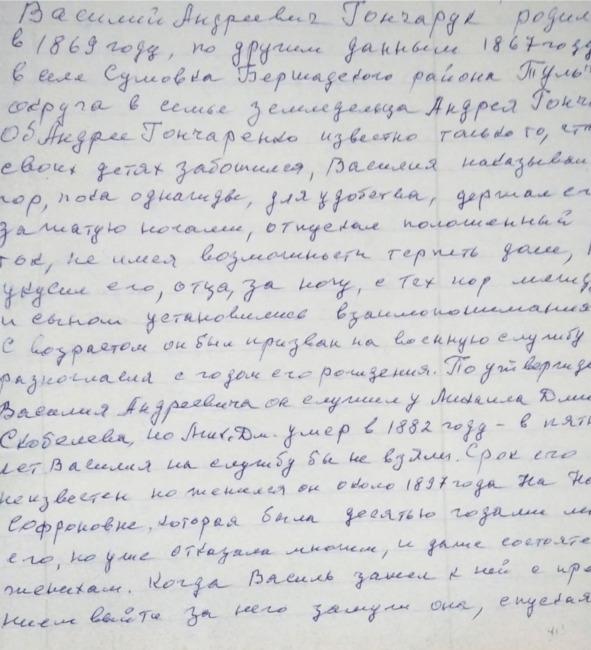 Василий Андреевич Гончарук родил
в 1869 году, по другим данным 1867 году
в селе Сумовка Бершадского района Туль
округа в семье земледельца Андрея Гонч
Об Андрее Гончаренко известно только то, чт
своих детях заботился, Василия наказывал
пор, пока однажды, для удобства, держал ег
зажатую ногами, отпускал положенный
ток, не имея возможности терпеть даже,
укусил его, отца, за ногу, с тех пор межд
и сыном установились взаимопонимания
С возрастом он был призван на военную службу
разногласия с годом его рождения. По утвержде
Василия Андреевича он служил у Михаила Дми
Скобелева, но Мих. Дм. умер в 1882 году – в пятн
лет Василия на службу бы не взяли. Срок его
неизвестен но женился он около 1897 года На На
Софроновне, которая была десятью годами мл
его, но уже отказала многим, и даже состояте
женихам. Когда Василь зашел к ней с пре
нием выйти за него замуж она, спуская